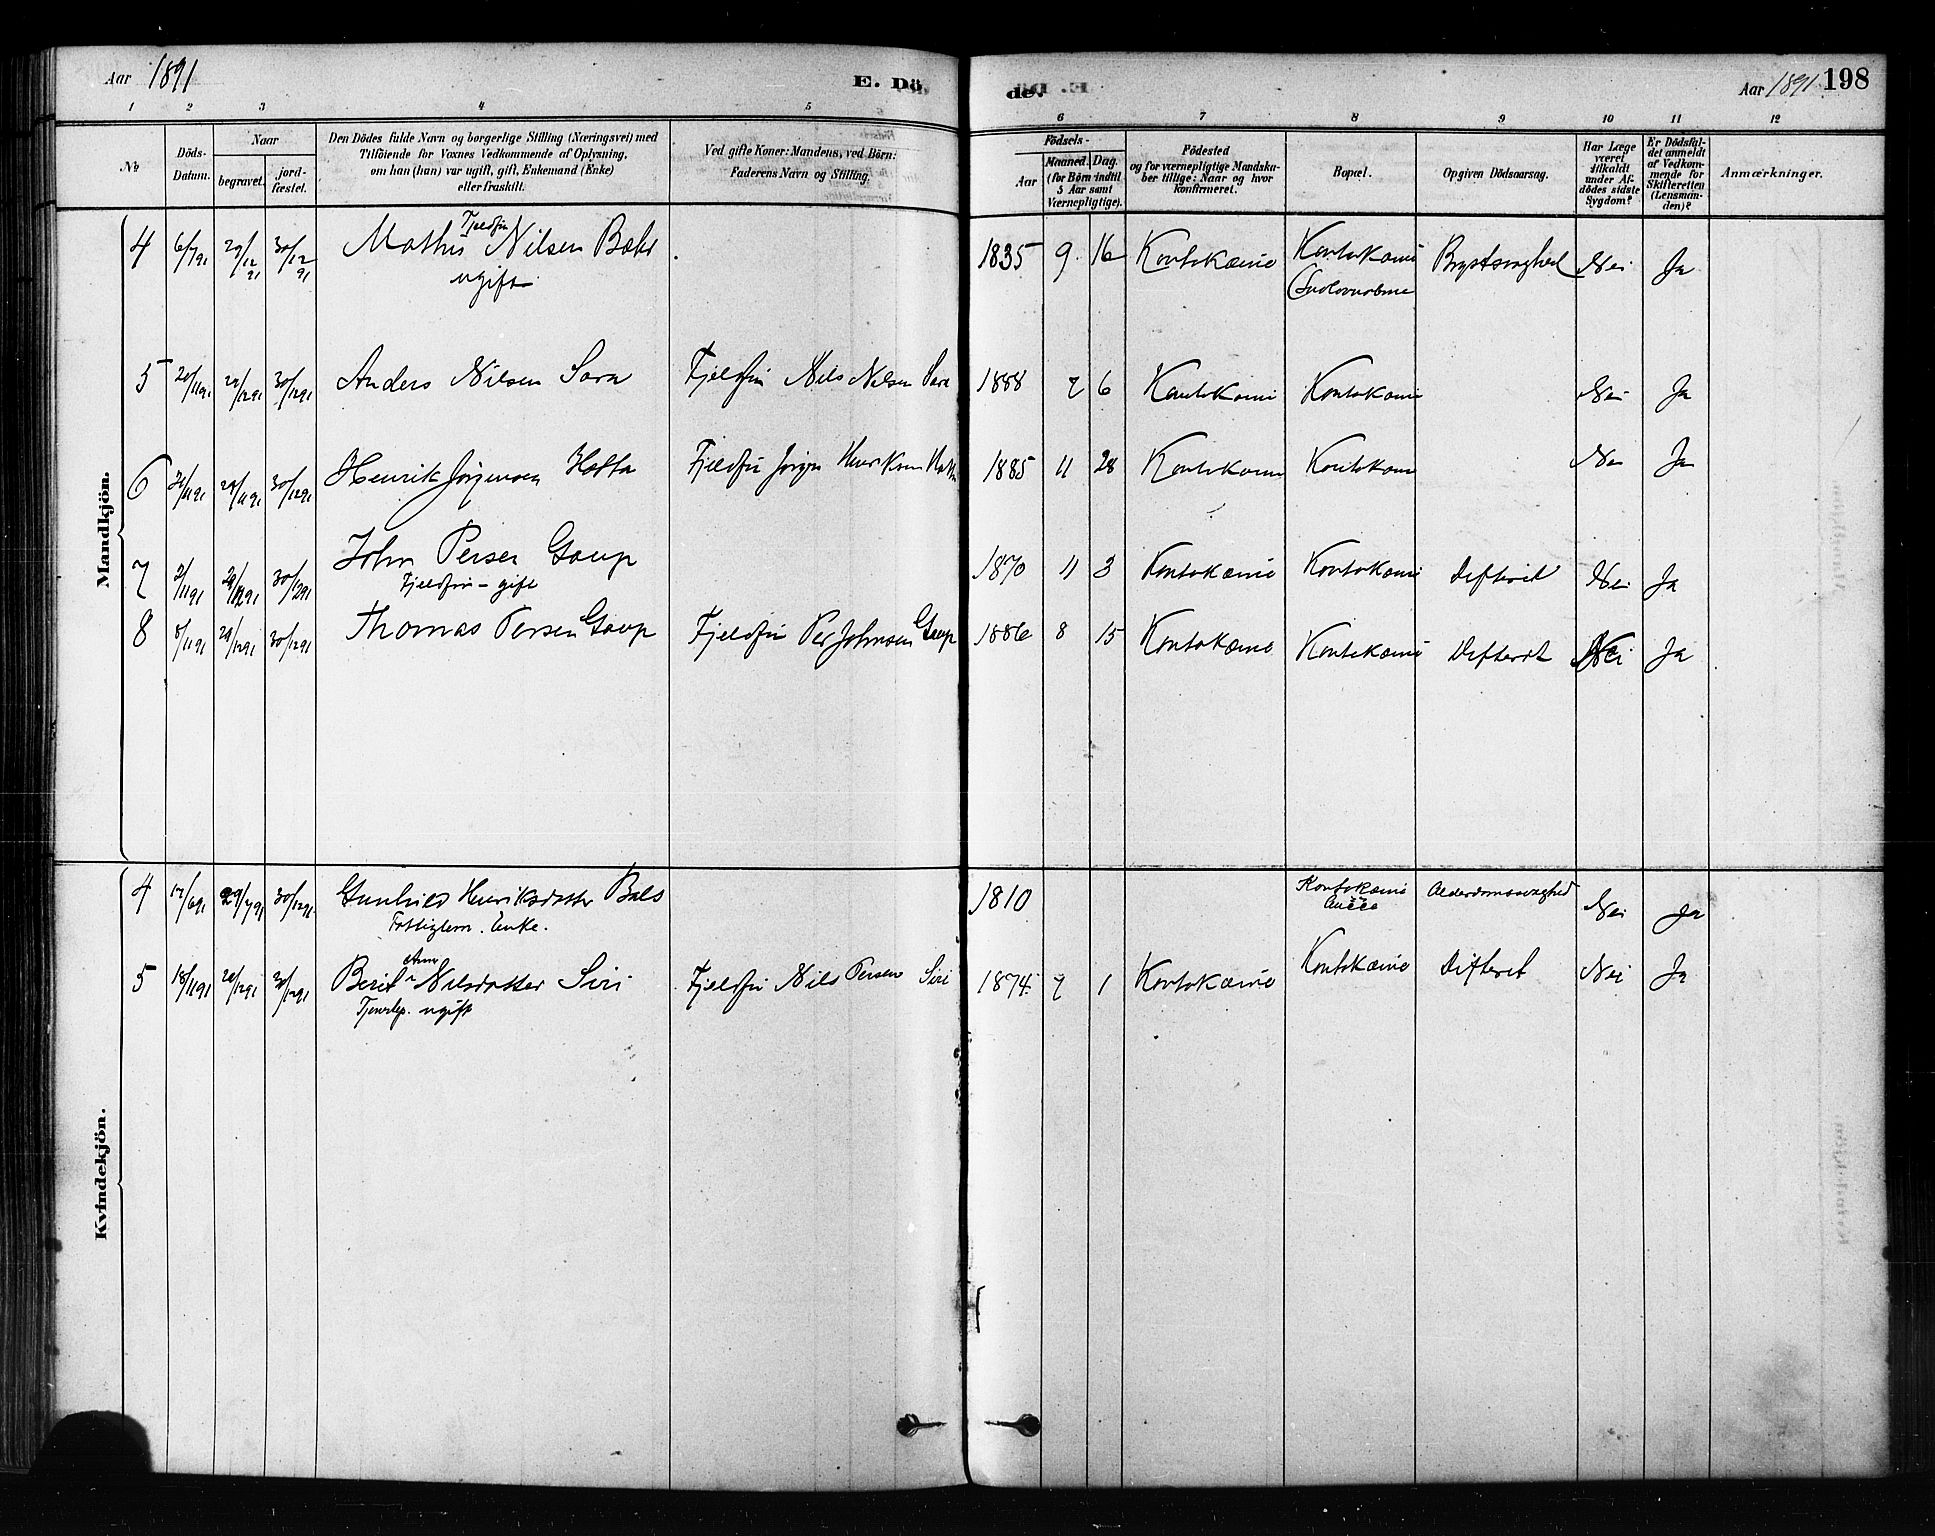 Aar 1891
E. Dö
de.
Aar 1891 198
1 2 3 4 5 6 7 8 9 10 11 12
No
Döds-Datum.
Naar
begravet.
jord-fæstet.
Den Dödes fulde Navn og borgerlige Stilling (Næringsvei) med
Tilföiende for Voxnes Vedkommende af Oplysning,
om han (hun) var ugift, gift, Enkemand (Enke)
eller fraskilt.
Ved gifte Koner: Mandens, ved Börn:
Faderens Navn og Stilling.
Födsels-
Aar
Maaned. Dag.
(for Börn indtil
5 Aar samt
Værnepligtige).
Födested
og for værnepligtige Mandska-
ber tillige: Naar og hvor
konfirmeret.
Bopæl.
Opgiven Dödsaarsag.
Har Læge
været
tilkaldt
under Af-
dödes sidste
Sygdom?
Er Dödsfal-
det anmeldt
af Vedkom-
mende for
Skifteretten
(Lensman-
den)?
Anmærkninger.
Mandkjön.
Fjeldfin
4 6/7 91 29/12 91 30/12 91 Mathis Nilsen Bæhr 1835 9 16 Koutokæino Koutokæino Brystsvaghed Nei Ja
ugift
5 20/11 91 29/12 91 30/12 91 Anders Nilsen Sara Fjeldfin Nils Nilsen Sara 1888 7 6 Koutokæino Koutokæino Nei Ja
6 29/12 91 30/12 91 Henrik Jörgensen Hætta Fjeldfin Jörgen Henriksen Hætta 1885 11 28 Koutokæino Koutokæino Nei Ja
7 2/11 91 29/12 91 30/12 91 John Persen Gaup 1870 11 3 Koutokæino Koutokæino Difterit Nei Ja
Fjeldfin - gift
8 8/11 91 29/12 91 30/12 91 Thomas Persen Gaup Fjeldfin Per Johnsen Gaup 1886 8 15 Koutokæino Koutokæino Difterit Nei Ja
Kvindekjön.
4 17/6 91 29/7 91 30/12 91 Gunhild Henriksdatter Bals 1810 Koutokæino Alderdomssvaghed Nei Ja
Fattiglem. Enke.
Anne
5 18/11 91 29/12 91 30/12 91 Berit Nilsdatter Siri Fjeldfin Nils Persen Siri 1874 7 1 Koutokæino Koutokæino Difterit Nei Ja
ugift